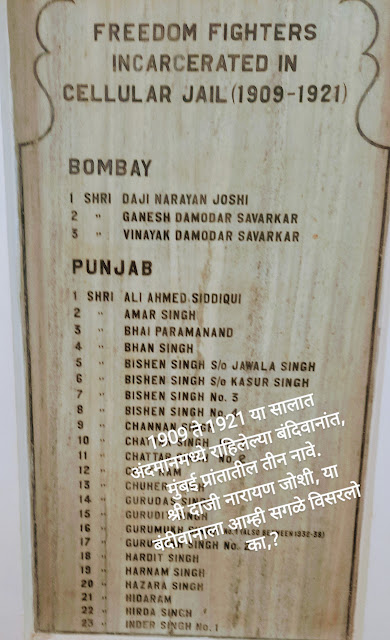 FREEDOM FIGHTERS
INCARCERATED IN
CELLULAR JAIL (1909-1921)
BOMBAY
1 SHRI DAJI NARAYAN JOSHI
2 " GANESH DAMODAR SAVARKAR
3 " VINAYAK DAMODAR SAVARKAR
PUNJAB
1 SHRI ALI AHMED SIDDIQUI
2 " AMAR SINGH
3 " BHAI PARAMANAND
4 " BHAN SINGH
5 " BISHEN SINGH S/o JAWALA SINGH
6 " BISHEN SINGH S/o KASUR SINGH
7 " BISHEN SINGH No. 3
8 " BISHEN SINGH No.
9 " CHANNAN
10 "
11 " CHATTAR
12 "
13 "
14 " GURUDAS
15 "
16 " (ALSO BETWEEN 1932-38)
17 "
18 " HARDIT SINGH
19 " HARNAM SINGH
20 " HAZARA SINGH
21 " HIDARAM
22 " HIRDA SINGH
23 " INDER SINGH No. 1
1909 ते 1921 या सालात
अंदमानमध्ये राहिलेल्या बंदिवानांत,
मुंबई प्रांतातील तीन नावे.
श्री दाजी नारायण जोशी, या
बंदीवानाला आम्ही सगळे विसरलो
का,?